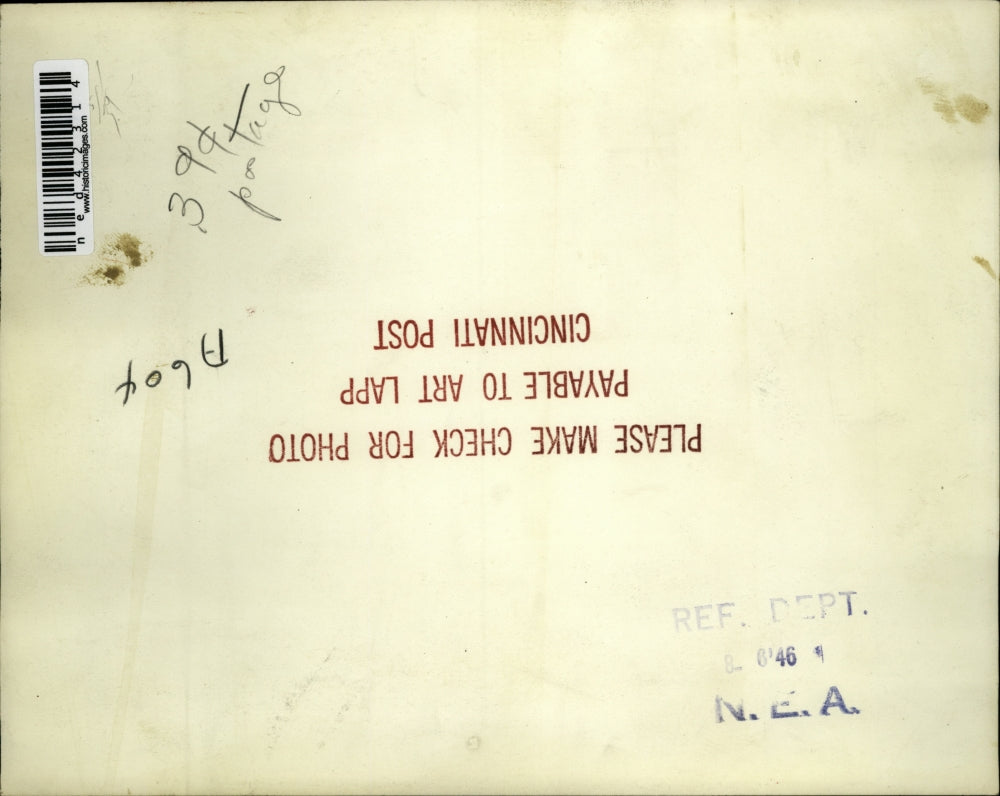 ned42314
www.historicimages.com
postage
A604
PLEASE MAKE CHECK FOR PHOTO
PAYABLE TO ART LAPP
CINCINNATI POST
REF. DEPT.
6'46
N.E.A.